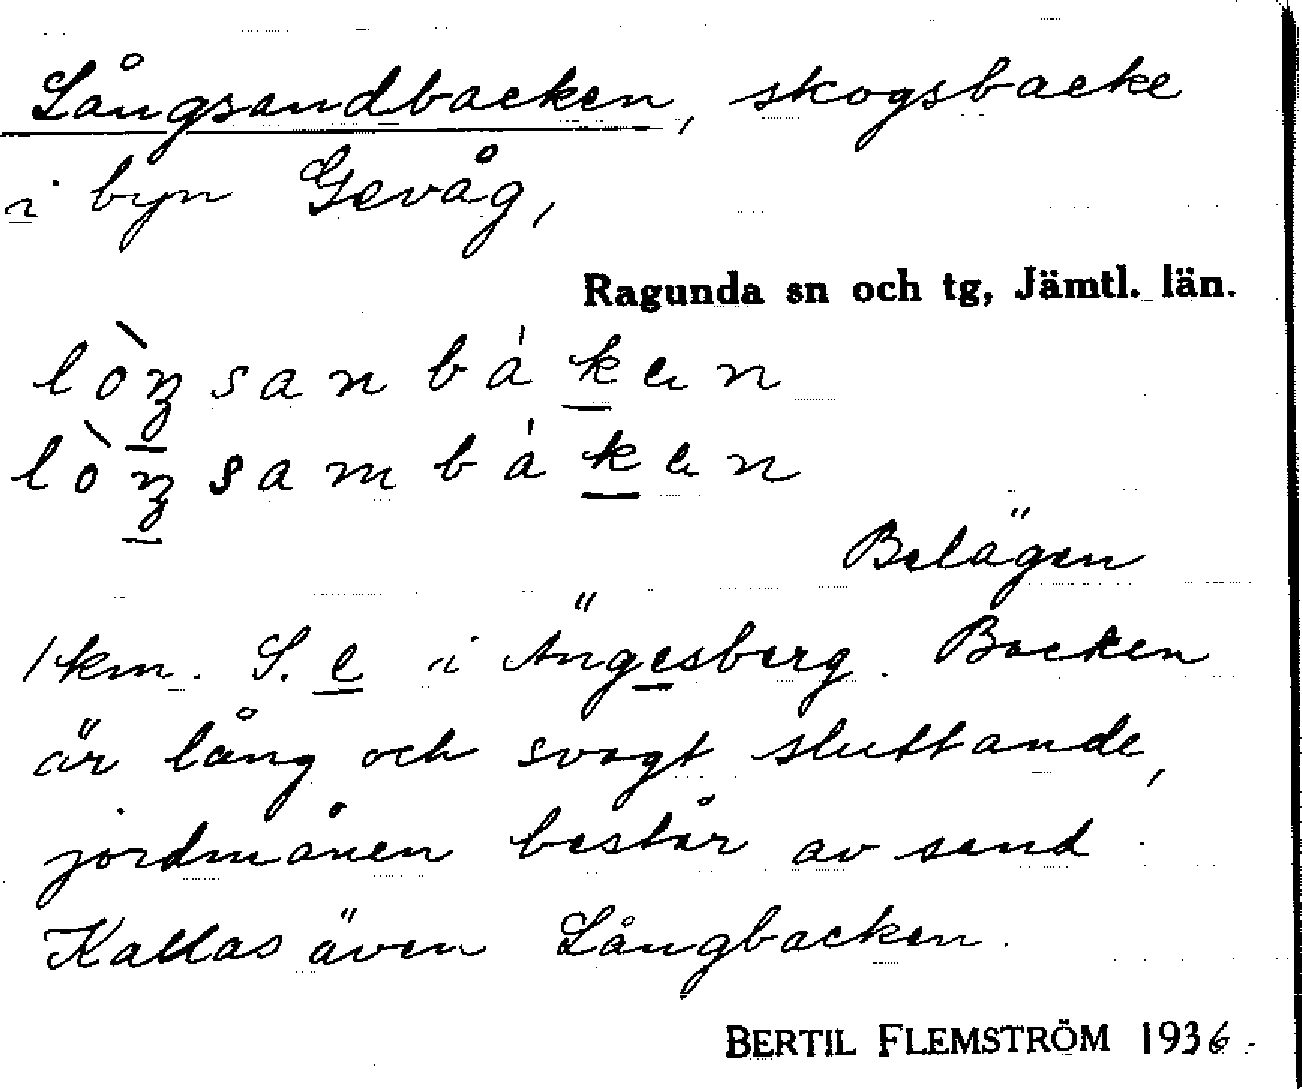 Långsandbacken, skogsbacke
i byn Gevåg,
Ragunda sn och tg, Jämtl. län.
lòŋsanbákɐn
lòŋsambákɐn
Belägen
1 km. S. e i Ängesberg. Backen
är lång och svagt sluttande,
jordmånen består av sand.
Kallas även Långbacken.
BERTIL FLEMSTRÖM 1936.